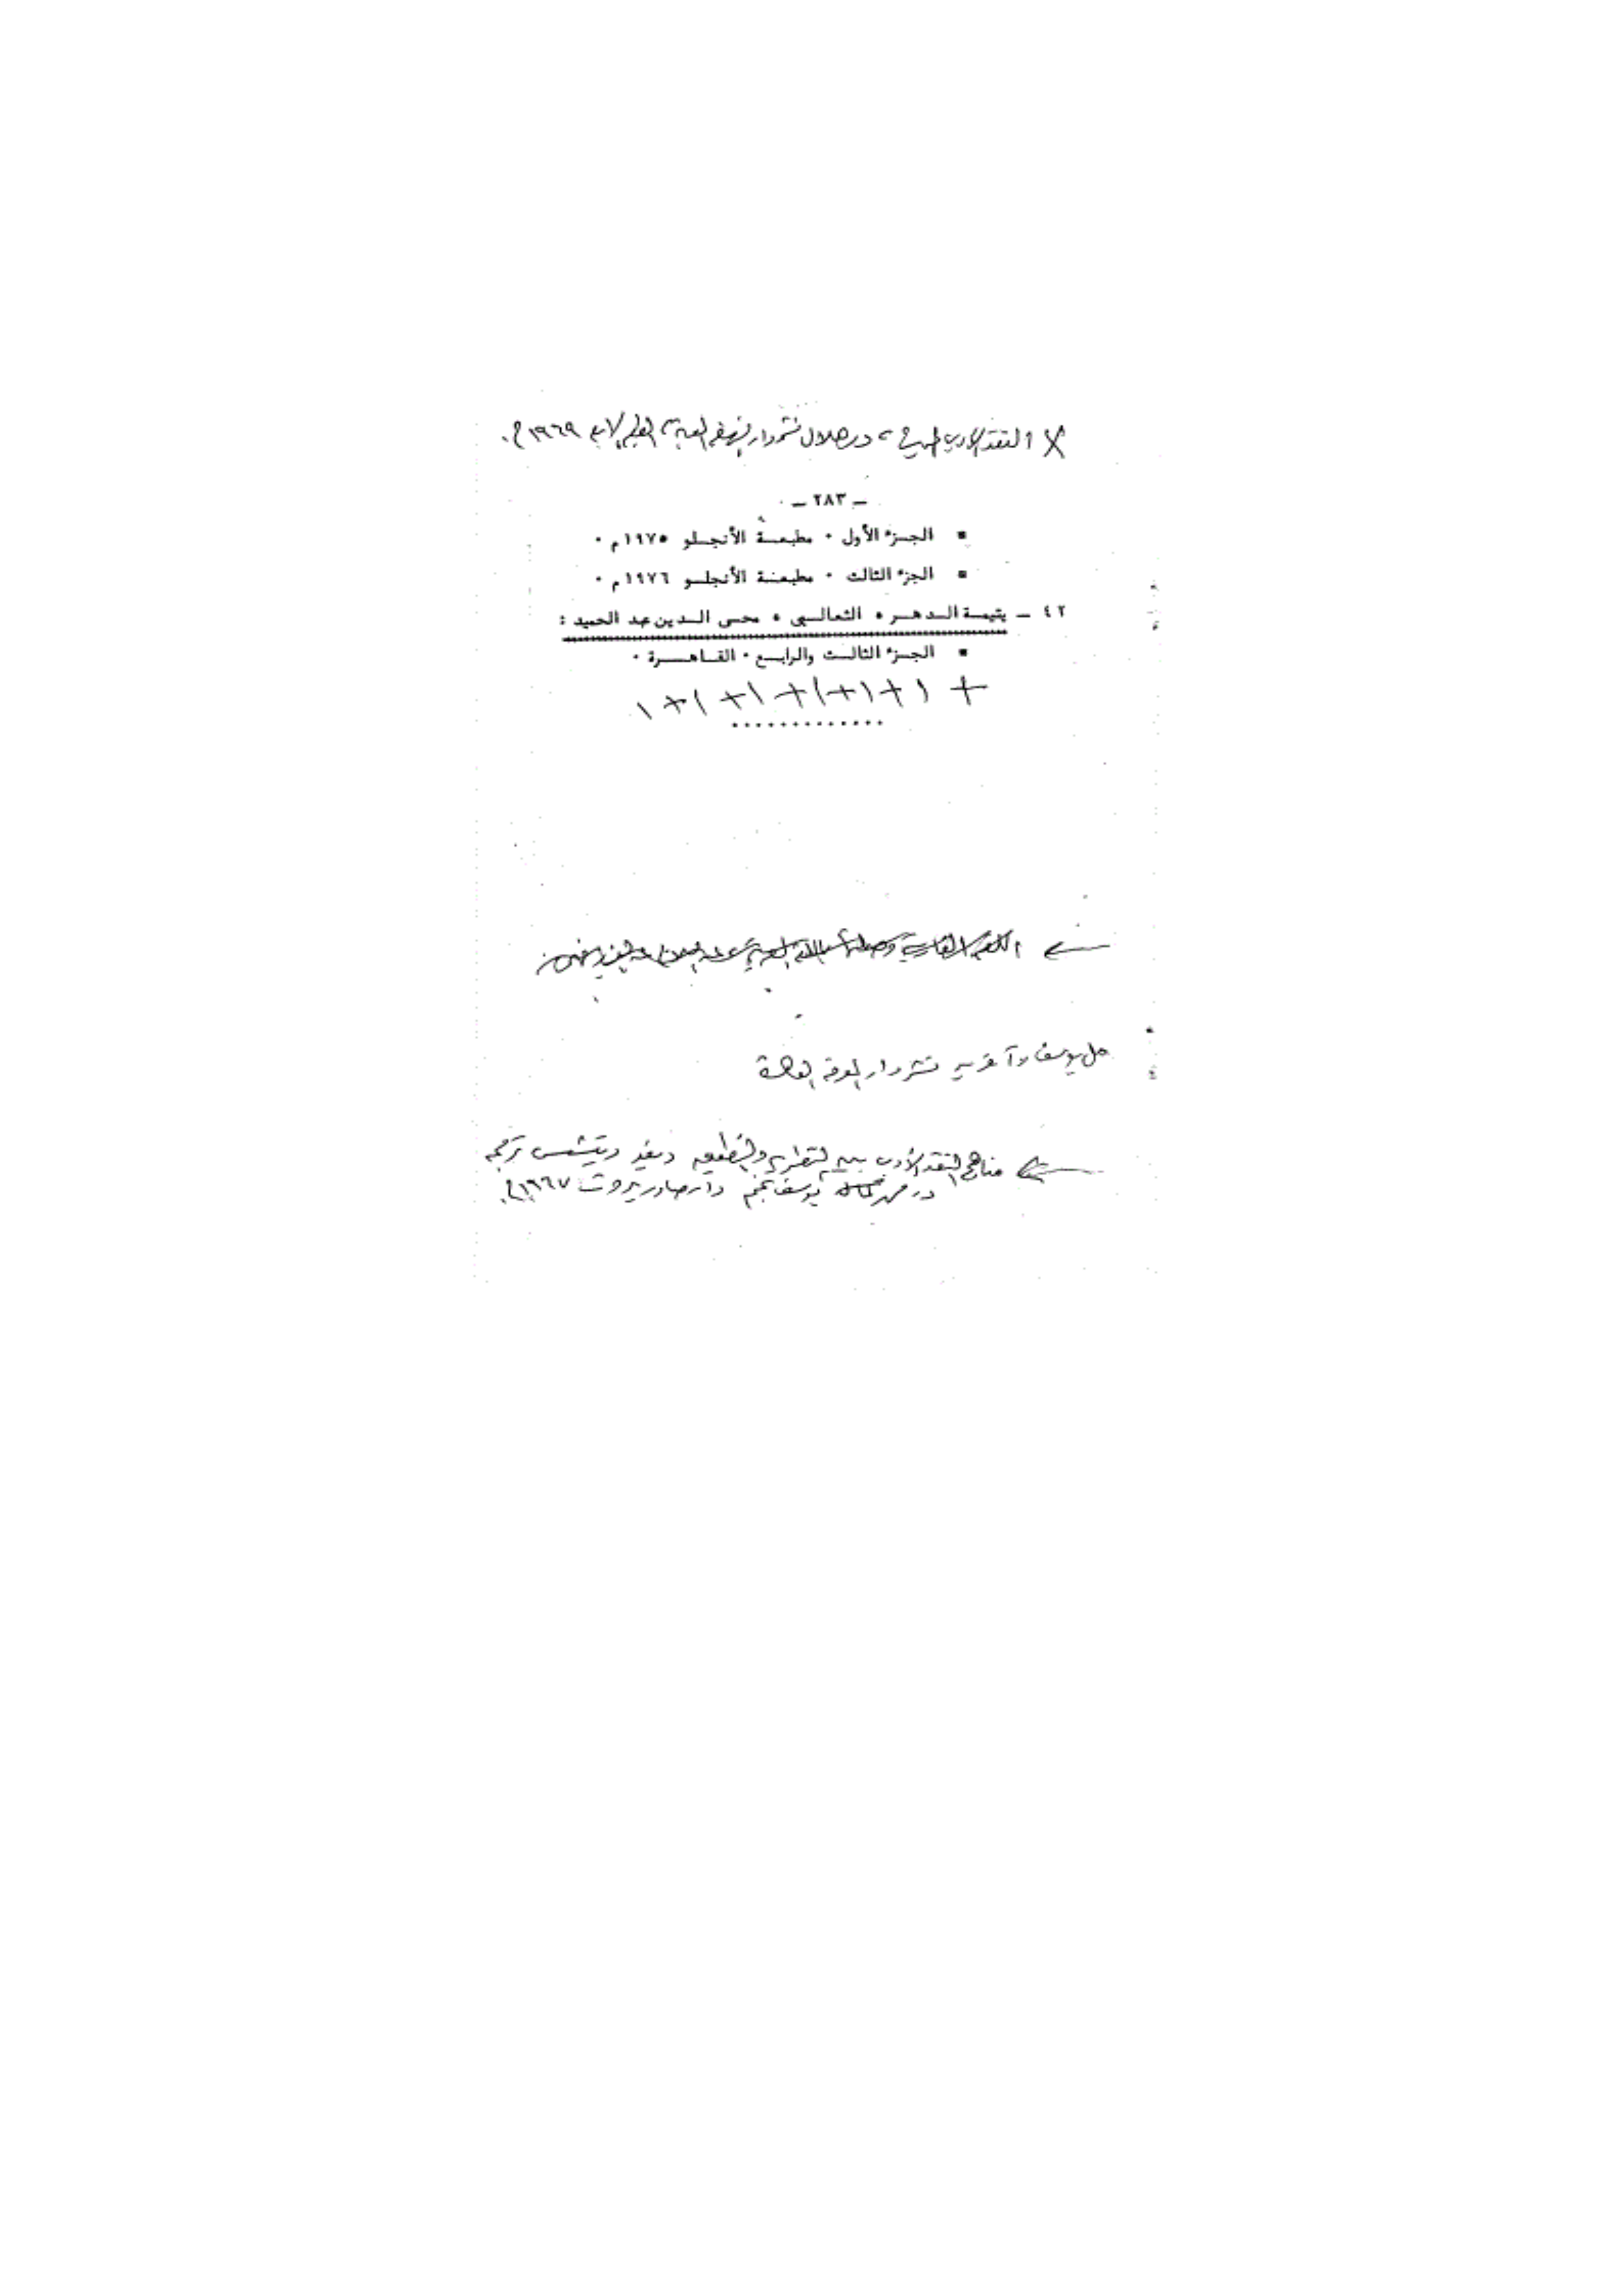 X النقد الأدبي الحديث، د. هلال نشر دار النهضة العربية، الطبعة الرابعة ١٩٦٩م.
ـ ٢٨٣ ـ
▪ الجزء الأول ٠ مطبعة الأنجلو ١٩٧٥م ٠
▪ الجزء الثالث ٠ مطبعة الأنجلو ١٩٧٦م ٠
٤٢ ـ يتيمة الدهر • الثعالبي • محى الدين عبد الحميد :
▪ الجزء الثالث والرابع ٠ القاهرة ٠
+ ١ + ١ + ١ + ١ + ١ + ١
.............
يوسف وآخرين نشر دار المعرفة القاهرة
مناهج النقد الأدبي بين النظرية والتطبيق ديفيد ديتشس ترجمة
د. محمد يوسف نجم دار صادر بيروت ١٩٦٧م.